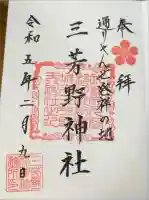 奉拝
通りゃんせ発祥の地
三芳野神社
令和五年二月九日